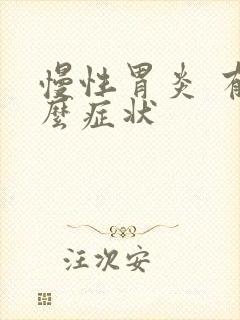 慢性胃炎 有
麽症状
汪次安